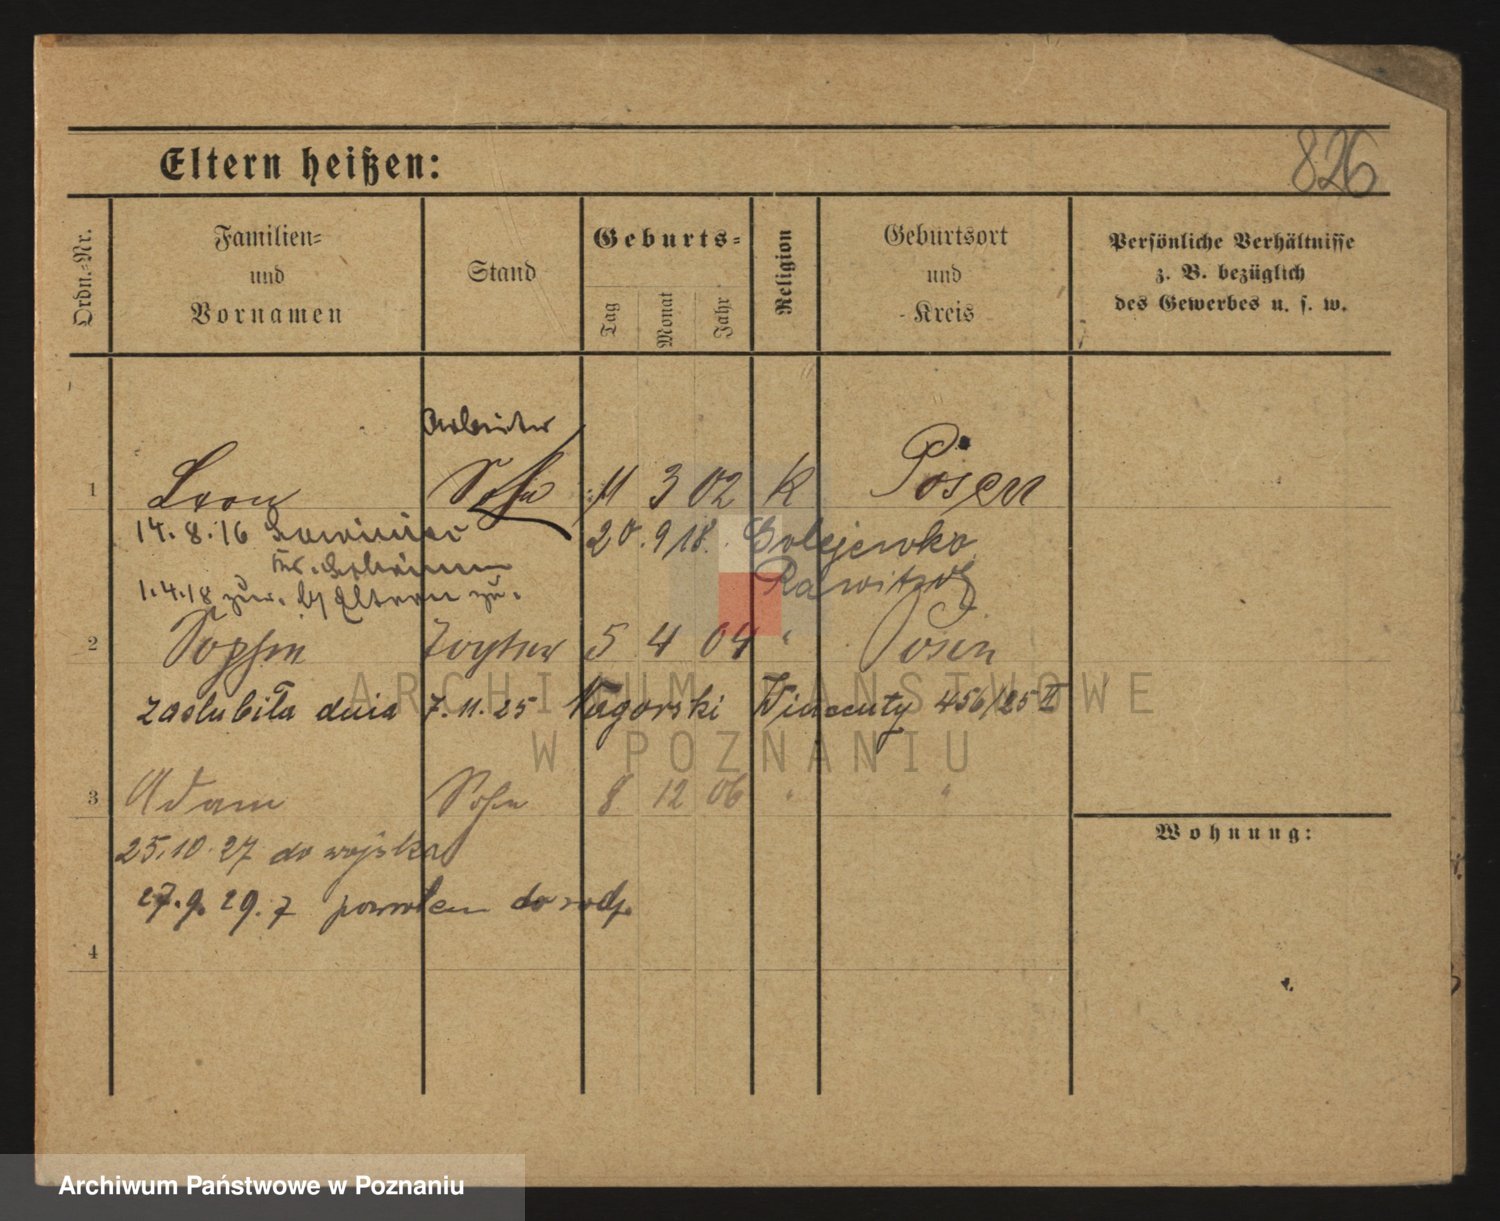 826
Eltern heißen:
Ordn.-Nr.
Familien-
und
Vornamen
Stand
Geburts-
Tag
Monat
Jahr
Religion
Geburtsort
und
Kreis
Persönliche Verhältnisse
z. B. bezüglich
des Gewerbes u. s. w.
Arbeiter
1 Leon Sohn 11 3 02 K Posen
14.8.16 20.9.18. Golejewko
Rawitsch
1.4.18 zur. Eltern zu.
2 Sophie Tochter 5 4 04 " Posen
zaślubiła dnia 7.11.25 Nagorski Wincenty 456/25 II
3 Adam Sohn 8 12 06 " "
25.10.27 do wojska
27.9.29. z powrotem do rodz.
4
Wohnung:
ARCHIWUM PAŃSTWOWE
W POZNANIU
Archiwum Państwowe w Poznaniu